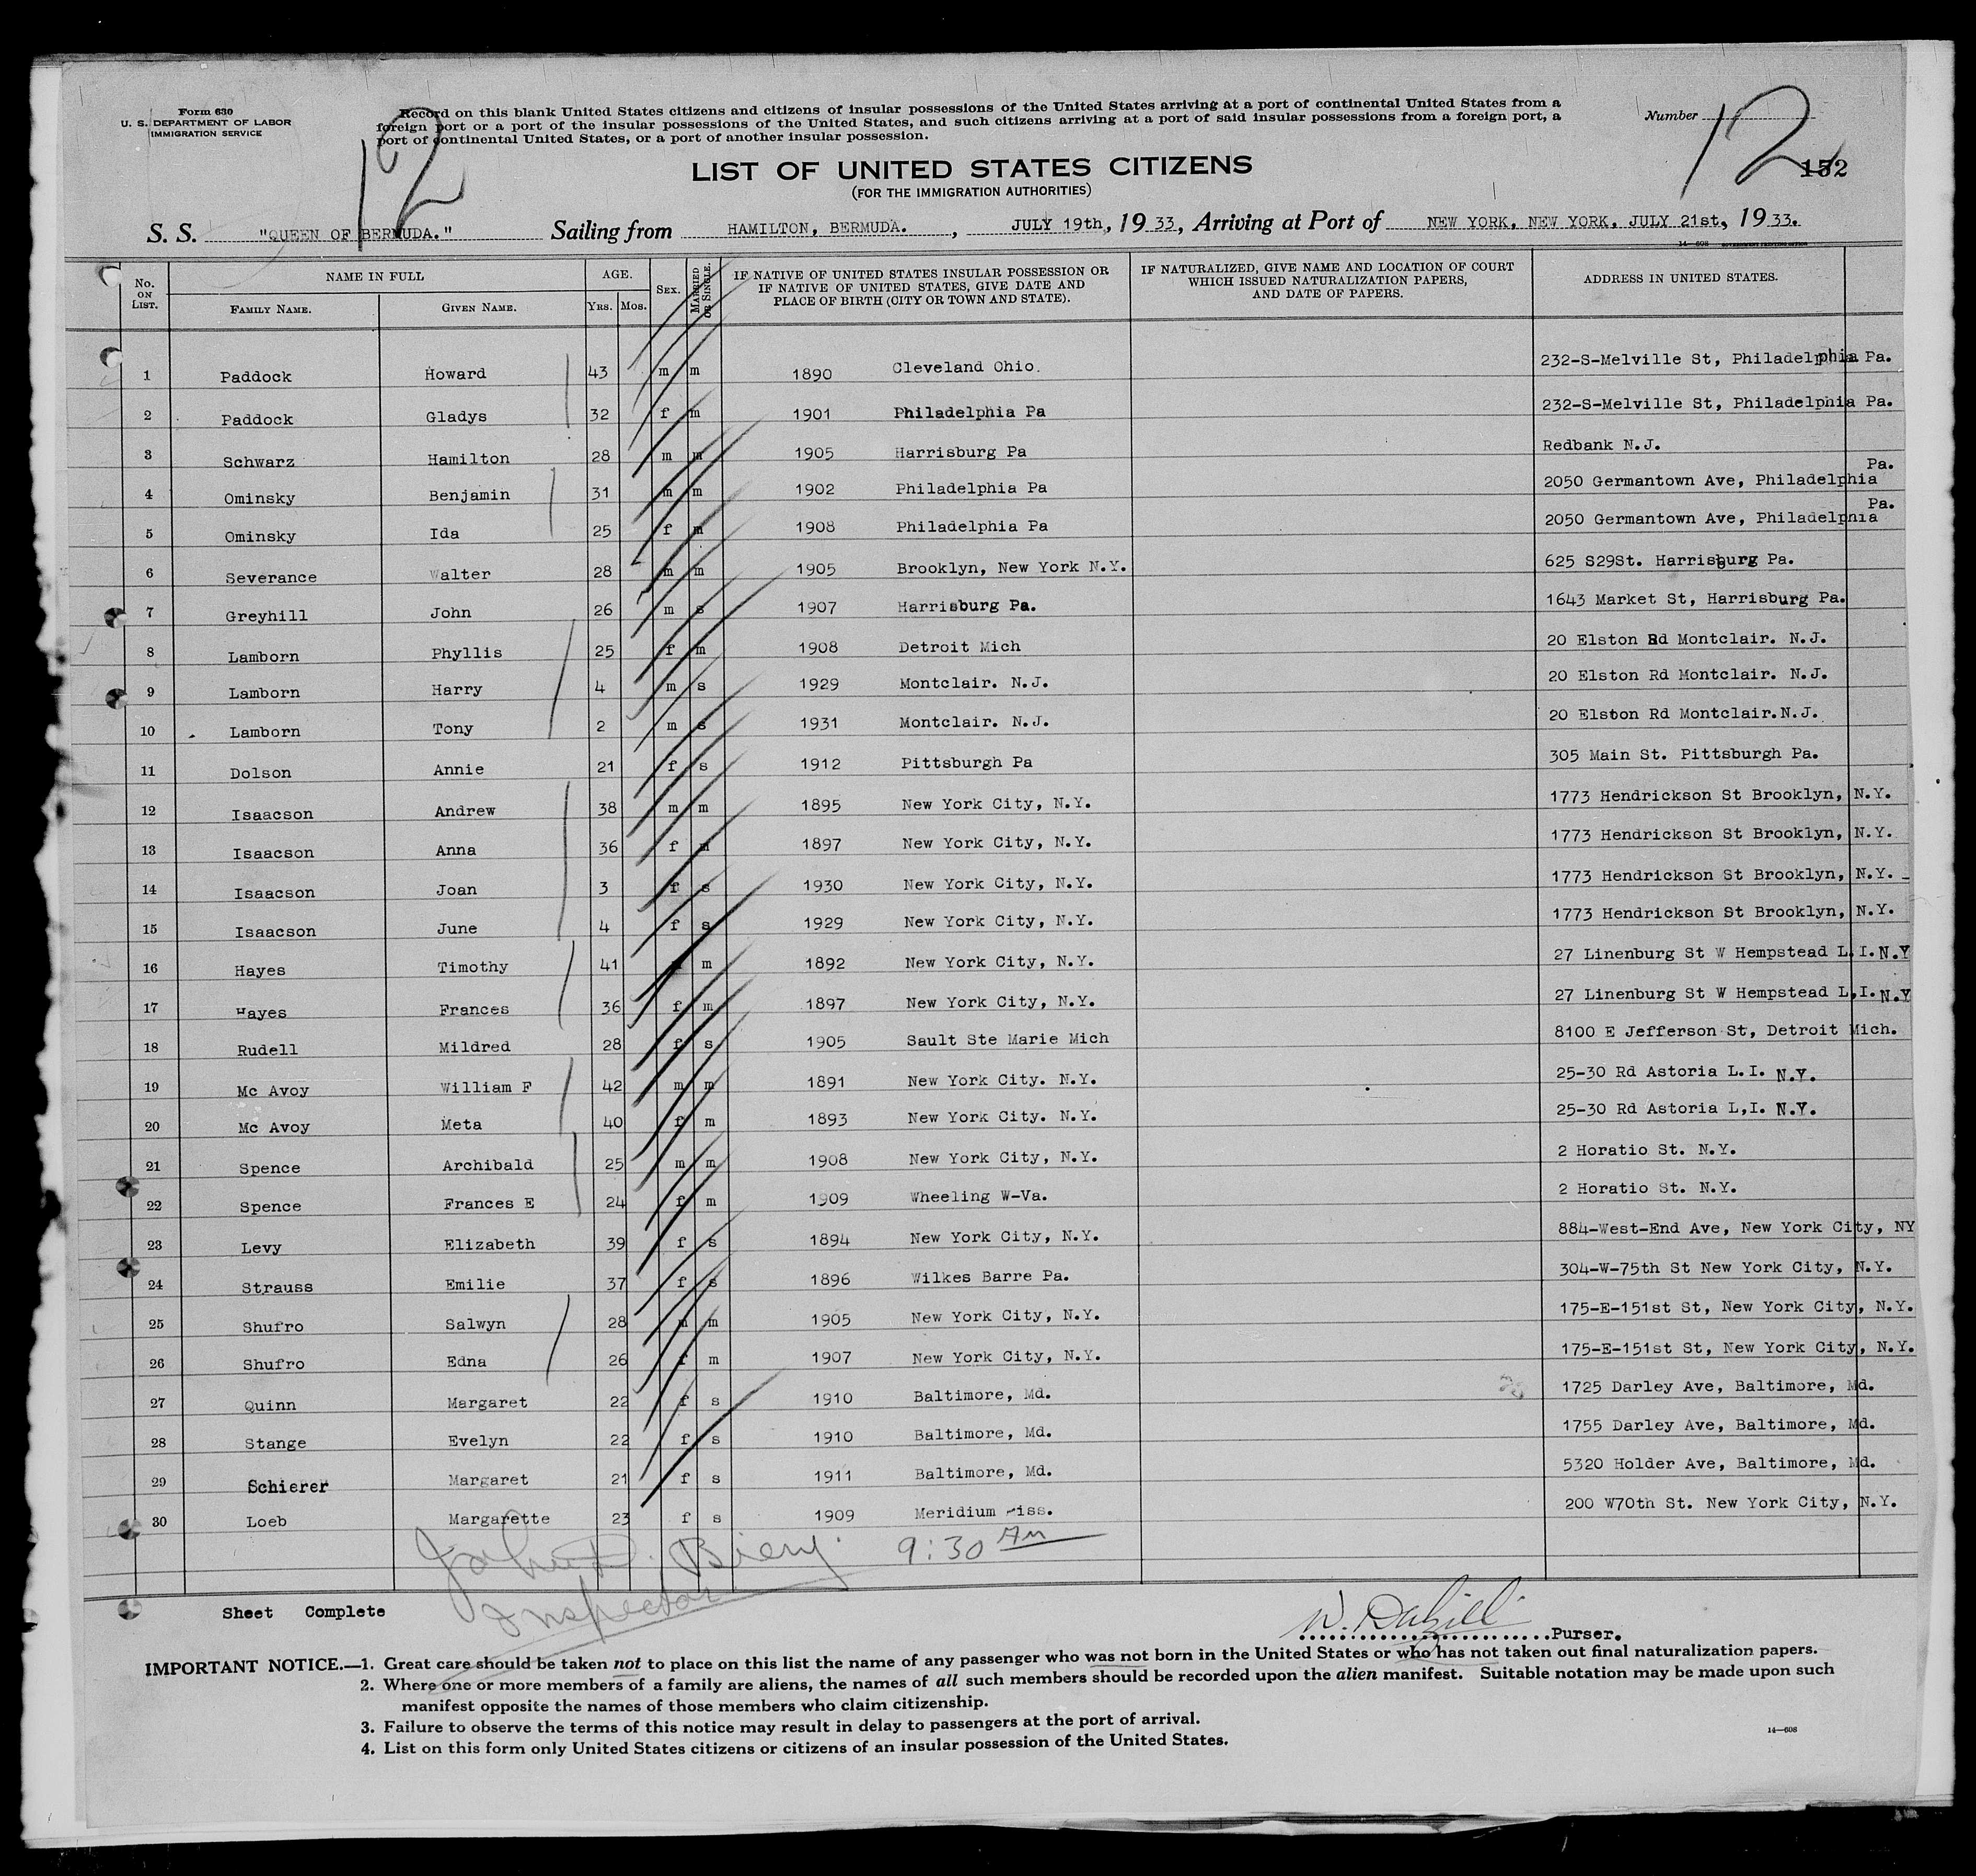 Form 630
U. S. DEPARTMENT OF LABOR
IMMIGRATION SERVICE
Record on this blank United States citizens and citizens of insular possessions of the United States arriving at a port of continental United States from a
foreign port or a port of the insular possessions of the United States, and such citizens arriving at a port of said insular possessions from a foreign port, a
port of continental United States, or a port of another insular possession.
Number
12
12
152
LIST OF UNITED STATES CITIZENS
(FOR THE IMMIGRATION AUTHORITIES)
S. S. "QUEEN OF BERMUDA." Sailing from HAMILTON, BERMUDA. , JULY 19th, 19 33, Arriving at Port of NEW YORK, NEW YORK, JULY 21st, 19 33.
14—608 GOVERNMENT PRINTING OFFICE
No. ON LIST. NAME IN FULL FAMILY NAME. GIVEN NAME. AGE. YRS. MOS. SEX. MARRIED OR SINGLE. IF NATIVE OF UNITED STATES INSULAR POSSESSION OR IF NATIVE OF UNITED STATES, GIVE DATE AND PLACE OF BIRTH (CITY OR TOWN AND STATE). IF NATURALIZED, GIVE NAME AND LOCATION OF COURT WHICH ISSUED NATURALIZATION PAPERS, AND DATE OF PAPERS. ADDRESS IN UNITED STATES.
1 Paddock Howard 43 m m 1890 Cleveland Ohio. 232-S-Melville St, Philadelphia Pa.
2 Paddock Gladys 32 f m 1901 Philadelphia Pa 232-S-Melville St, Philadelphia Pa.
3 Schwarz Hamilton 28 m m 1905 Harrisburg Pa Redbank N.J.
4 Ominsky Benjamin 31 m m 1902 Philadelphia Pa 2050 Germantown Ave, Philadelphia Pa.
5 Ominsky Ida 25 f m 1908 Philadelphia Pa 2050 Germantown Ave, Philadelphia Pa.
6 Severance Walter 28 m m 1905 Brooklyn, New York N.Y. 625 S29St. Harrisburg Pa.
7 Greyhill John 26 m s 1907 Harrisburg Pa. 1643 Market St, Harrisburg Pa.
8 Lamborn Phyllis 25 f m 1908 Detroit Mich 20 Elston Rd Montclair. N.J.
9 Lamborn Harry 4 m s 1929 Montclair. N.J. 20 Elston Rd Montclair. N.J.
10 Lamborn Tony 2 m s 1931 Montclair. N.J. 20 Elston Rd Montclair.N.J.
11 Dolson Annie 21 f s 1912 Pittsburgh Pa 305 Main St. Pittsburgh Pa.
12 Isaacson Andrew 38 m m 1895 New York City, N.Y. 1773 Hendrickson St Brooklyn, N.Y.
13 Isaacson Anna 36 f m 1897 New York City, N.Y. 1773 Hendrickson St Brooklyn, N.Y.
14 Isaacson Joan 3 f s 1930 New York City, N.Y. 1773 Hendrickson St Brooklyn, N.Y.
15 Isaacson June 4 f s 1929 New York City, N.Y. 1773 Hendrickson St Brooklyn, N.Y.
16 Hayes Timothy 41 m 1892 New York City, N.Y. 27 Linenburg St W Hempstead L.I. N.Y
17 Hayes Frances 36 f m 1897 New York City, N.Y. 27 Linenburg St W Hempstead L,I. N.Y
18 Rudell Mildred 28 f s 1905 Sault Ste Marie Mich 8100 E Jefferson St, Detroit Mich.
19 Mc Avoy William F 42 m m 1891 New York City. N.Y. 25-30 Rd Astoria L.I. N.Y.
20 Mc Avoy Meta 40 f m 1893 New York City. N.Y. 25-30 Rd Astoria L,I. N.Y.
21 Spence Archibald 25 m m 1908 New York City, N.Y. 2 Horatio St. N.Y.
22 Spence Frances E 24 f m 1909 Wheeling W-Va. 2 Horatio St. N.Y.
23 Levy Elizabeth 39 f s 1894 New York City, N.Y. 884-West-End Ave, New York City, NY
24 Strauss Emilie 37 f s 1896 Wilkes Barre Pa. 304-W-75th St New York City, N.Y.
25 Shufro Salwyn 28 m m 1905 New York City, N.Y. 175-E-151st St, New York City, N.Y.
26 Shufro Edna 26 f m 1907 New York City, N.Y. 175-E-151st St, New York City, N.Y.
27 Quinn Margaret 22 f s 1910 Baltimore, Md. 1725 Darley Ave, Baltimore, Md.
28 Stange Evelyn 22 f s 1910 Baltimore, Md. 1755 Darley Ave, Baltimore, Md.
29 Schierer Margaret 21 f s 1911 Baltimore, Md. 5320 Holder Ave, Baltimore, Md.
30 Loeb Margarette 23 f s 1909 Meridium Miss. 200 W70th St. New York City, N.Y.
John D. Biery. 9:30 AM
Inspector
Sheet Complete
Purser.
IMPORTANT NOTICE.—1. Great care should be taken not to place on this list the name of any passenger who was not born in the United States or who has not taken out final naturalization papers.
2. Where one or more members of a family are aliens, the names of all such members should be recorded upon the alien manifest. Suitable notation may be made upon such
manifest opposite the names of those members who claim citizenship.
3. Failure to observe the terms of this notice may result in delay to passengers at the port of arrival.
4. List on this form only United States citizens or citizens of an insular possession of the United States.
14—608